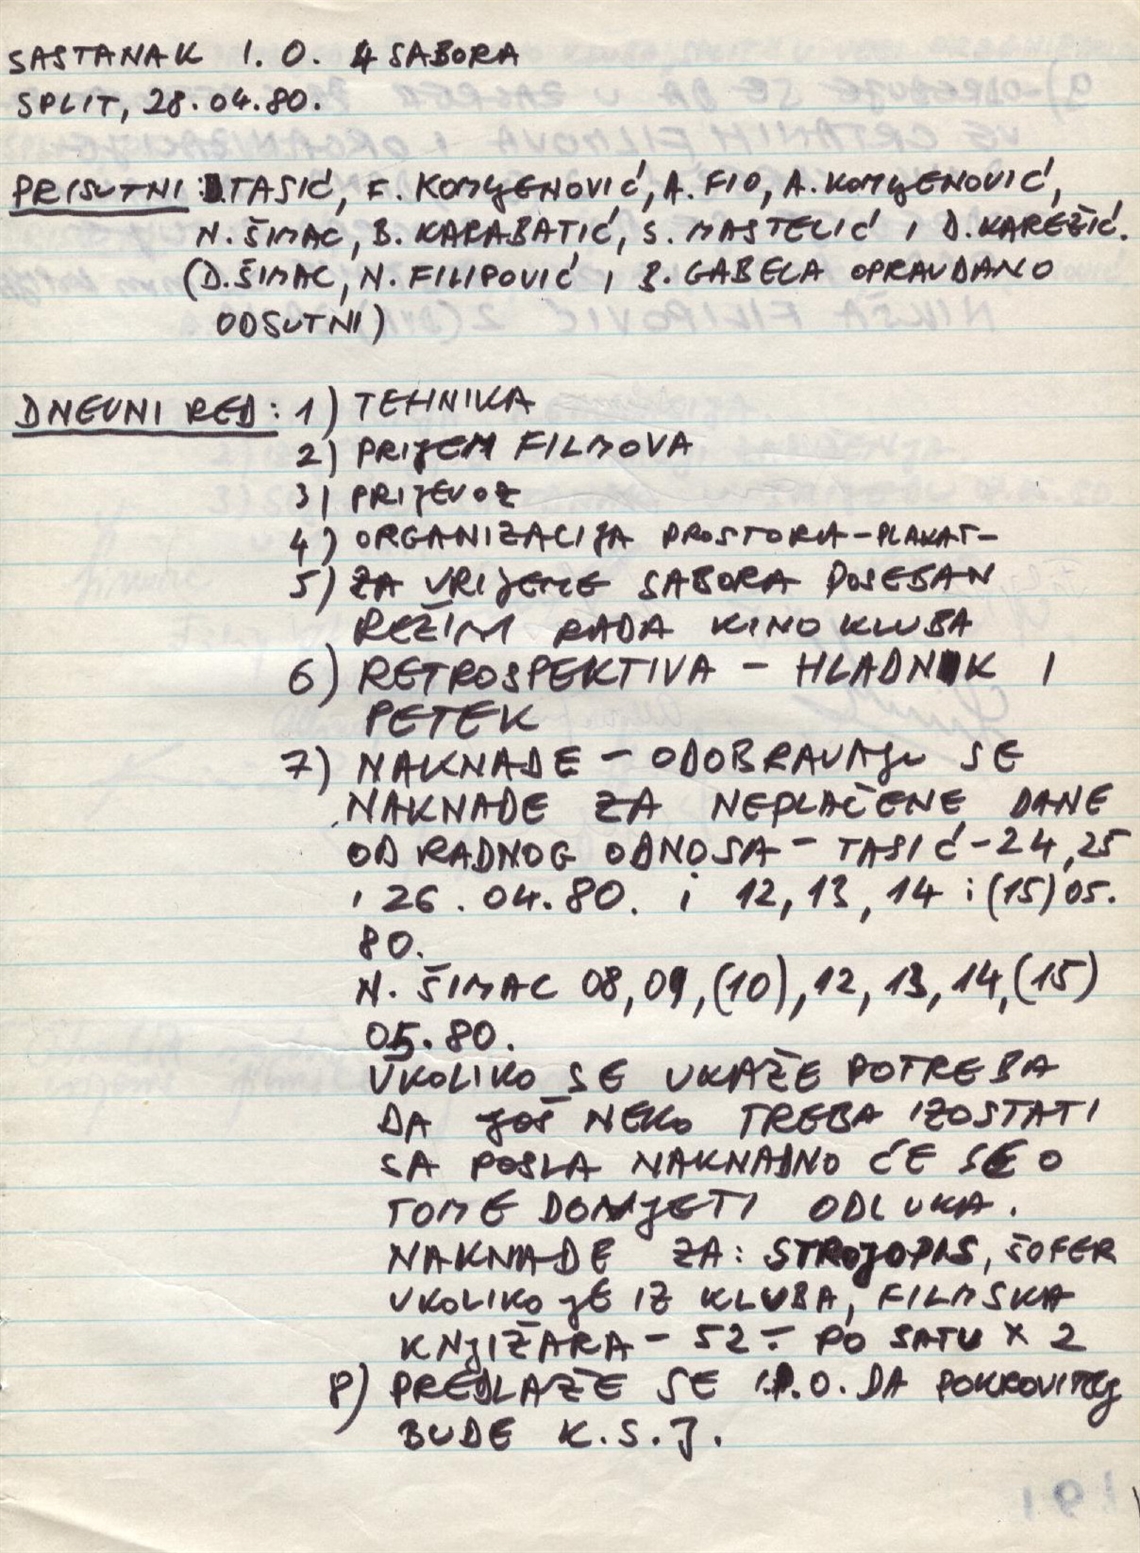 SASTANAK I.O. 4 SABORA
SPLIT, 28.04.80.
PRISUTNI: TASIĆ, F. KOMJENOVIĆ, A. FIO, A. KOMJENOVIĆ,
N. ŠIMAC, B. KARABATIĆ, S. MASTELIĆ I D. KAREŽIĆ.
(D. ŠIMAC, N. FILIPOVIĆ I B. GABELA OPRAVDANO
ODSUTNI)
DNEVNI RED: 1) TEHNIKA
2) PRIJEM FILMOVA
3) PRIJEVOZ
4) ORGANIZACIJA PROSTORA-PLAKAT-
5) ZA VRIJEME SABORA POSEBAN
REŽIM RADA KINO KLUBA
6) RETROSPEKTIVA - HLADNIK I
PETEK
7) NAKNADE - ODOBRAVAJU SE
NAKNADE ZA NEPLAČENE DANE
OD RADNOG ODNOSA - TASIĆ-24,25
I 26.04.80. i 12, 13, 14 i (15) 05.
80.
N. ŠIMAC 08, 09, (10), 12, 13, 14, (15)
05.80.
UKOLIKO SE UKAŽE POTREBA
DA JOŠ NEKO TREBA IZOSTATI
SA POSLA NAKNADNO ĆE SE O
TOME DONIJETI ODLUKA.
NAKNADE ZA: STROJOPIS, ŠOFER
UKOLIKO JE IZ KLUBA, FILMSKA
KNJIŽARA - 52.- PO SATU X 2
8) PREDLAŽE SE I.O. DA POKROVITELJ
BUDE K.S.J.